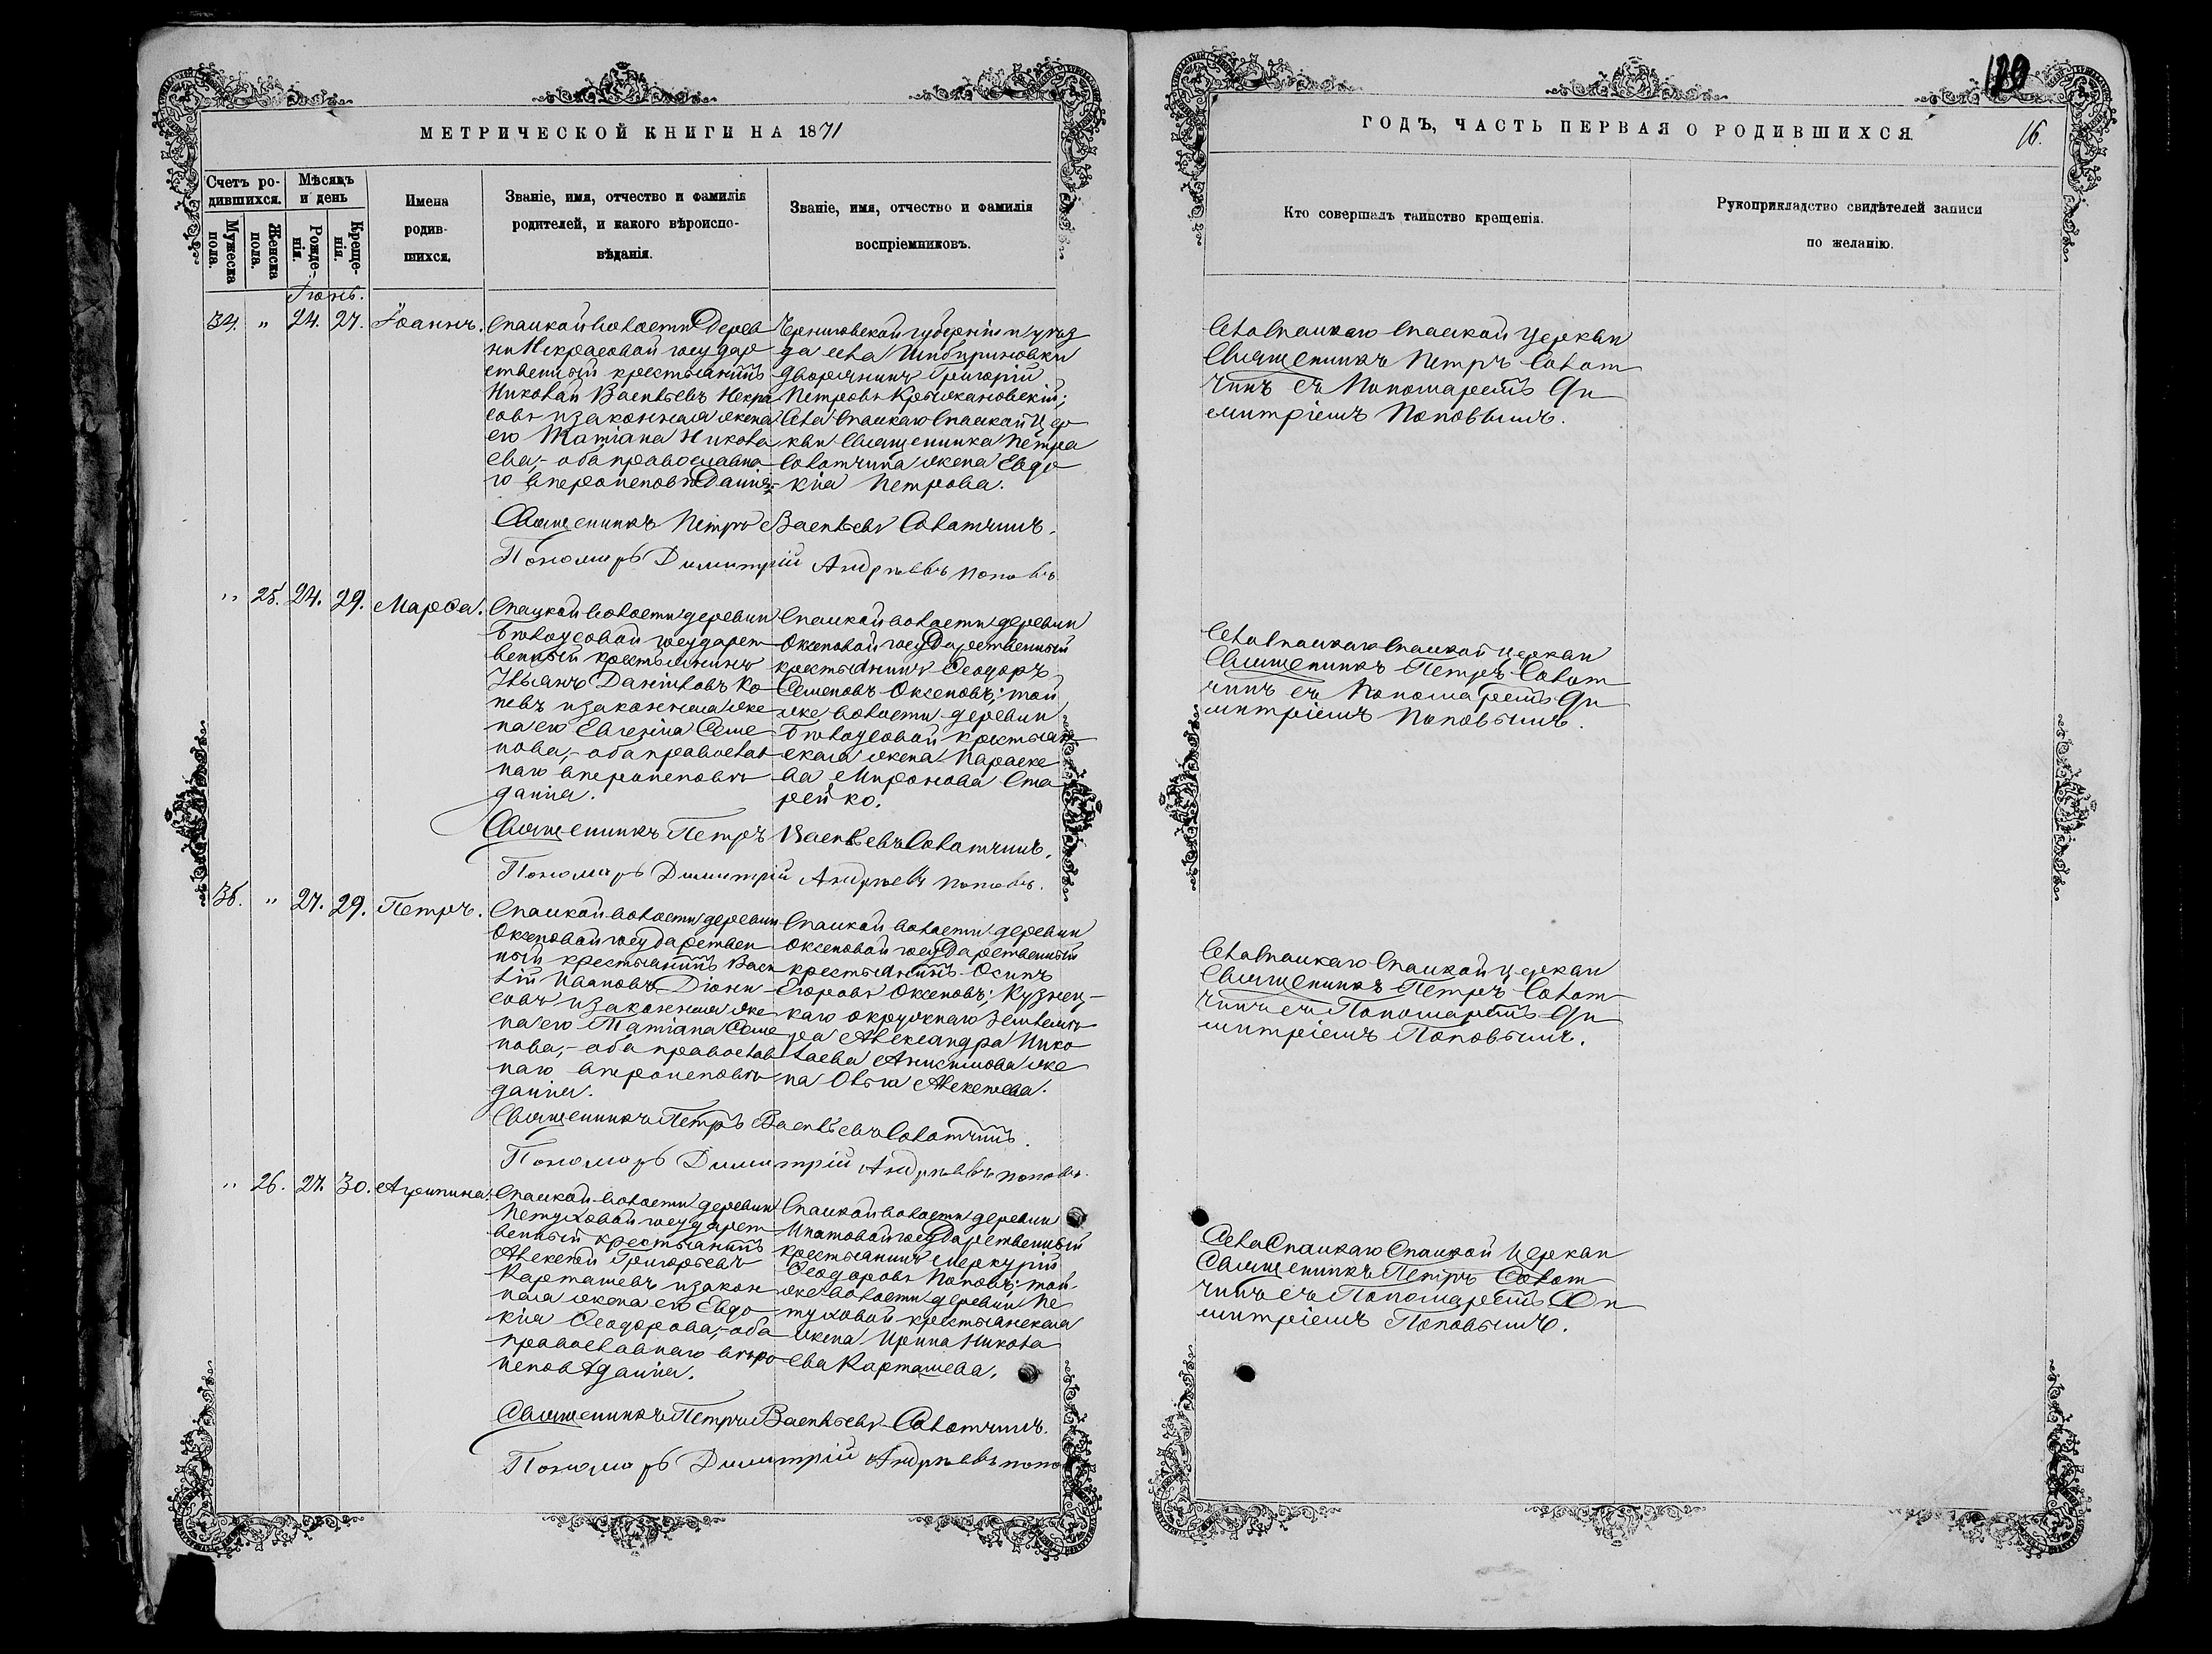 МЕТРИЧЕСКОЙ КНИГИ НА 1871
Счетъ ро-
дившихся.
Мѣсяцъ
и день
Мужеска
пола.
Женска
пола.
Рожде-
нія.
Креще-
нія.
Имена
родив-
шихся.
Званіе, имя, отчество и фамилія
родителей, и какого вѣроиспо-
вѣданія.
Званіе, имя, отчество и фамилія
воспріемниковъ.
Іюнь.
34. " 24. 27. Іоаннъ.
Спаской волости Дерев
ни Некрасовой государ
ственный крестьянинъ
Николай Васильевъ Некра
совъ и законная жена
его Татіана Никола
ева, - оба православна
го вѣроисповѣданія.
Черниговской губерніи и уѣз
да села
дворянинъ Григорій
Петровъ Крыжановскій;
села Спаскаго Спаской Цер
кви Священника Петра
Словатчина жена Евдо
кіа Петрова.
Священникъ Петръ Васильевъ
Пономарь Димитрій Андреевъ Поповъ.
" 25. 24. 29. Марѳа.
Спаской волости деревни
Бѣлоусовой государст
венный крестьянинъ
Ульянъ Даніиловъ Ко
невъ и законная же
на его Евгенія Семе
нова, - оба православ
наго вѣроисповѣ
данія.
Спаской волости деревни
Оксеновой государственный
крестьянинъ Ѳеодоръ
Семеновъ Оксеновъ; той
же волости деревни
Бѣлоусовой крестьян
ская жена Параске
ва Миронова Ста
рейко.
Священникъ Петръ Васильевъ
Пономарь Димитрій Андреевъ Поповъ.
35. " 27. 29. Петръ.
Спаской волости деревни
Оксеновой государствен
ный крестьянинъ Васи
лій Ивановъ Діони
совъ и законная же
на его Татіана Семе
нова, - оба православ
наго вѣроисповѣ
данія.
Спаской волости деревни
Оксеновой государственный
крестьянинъ Осипъ
Егоровъ Оксеновъ; Кузнец-
каго окружнаго Землемѣ
ра Александра Нико
лаева Анисимова же
на Ольга Алексеева.
Священникъ Петръ Васильевъ
Пономарь Димитрій Андреевъ Поповъ.
" 26. 27. 30. Агрипина.
Спаской волости деревни
Петуховой государст
венный крестьянинъ
Алексей Григорьевъ
Карташевъ и закон
ная жена его Евдо
кіа Ѳеодорова, - оба
православнаго вѣро
исповѣданія.
Спаской волости деревни
Ипатовой государственный
крестьянинъ Меркурій
Ѳеодоровъ Поповъ; той-
же волости деревни Пе
туховой крестьянская
жена Ирина Никола
ева Карташева.
Священникъ Петръ Васильевъ
Пономарь Димитрій Андреевъ Попо
ГОДЪ, ЧАСТЬ ПЕРВАЯ О РОДИВШИХСЯ
16.
Кто совершалъ таинство крещенія.
Рукоприкладство свидѣтелей записи
по желанію.
Села Спаскаго Спаской Церкви
Священникъ Петръ
съ Пономаремъ Ди
митріемъ Поповымъ.
Села Спаскаго Спаской Церкви
Священникъ Петръ
съ Пономаремъ Ди
митріемъ Поповымъ.
Села Спаскаго Спаской Церкви
Священникъ Петръ
съ Пономаремъ Ди
митріемъ Поповымъ.
Села Спаскаго Спаской Церкви
Священникъ Петръ
съ Пономаремъ Ди
митріемъ Поповымъ.